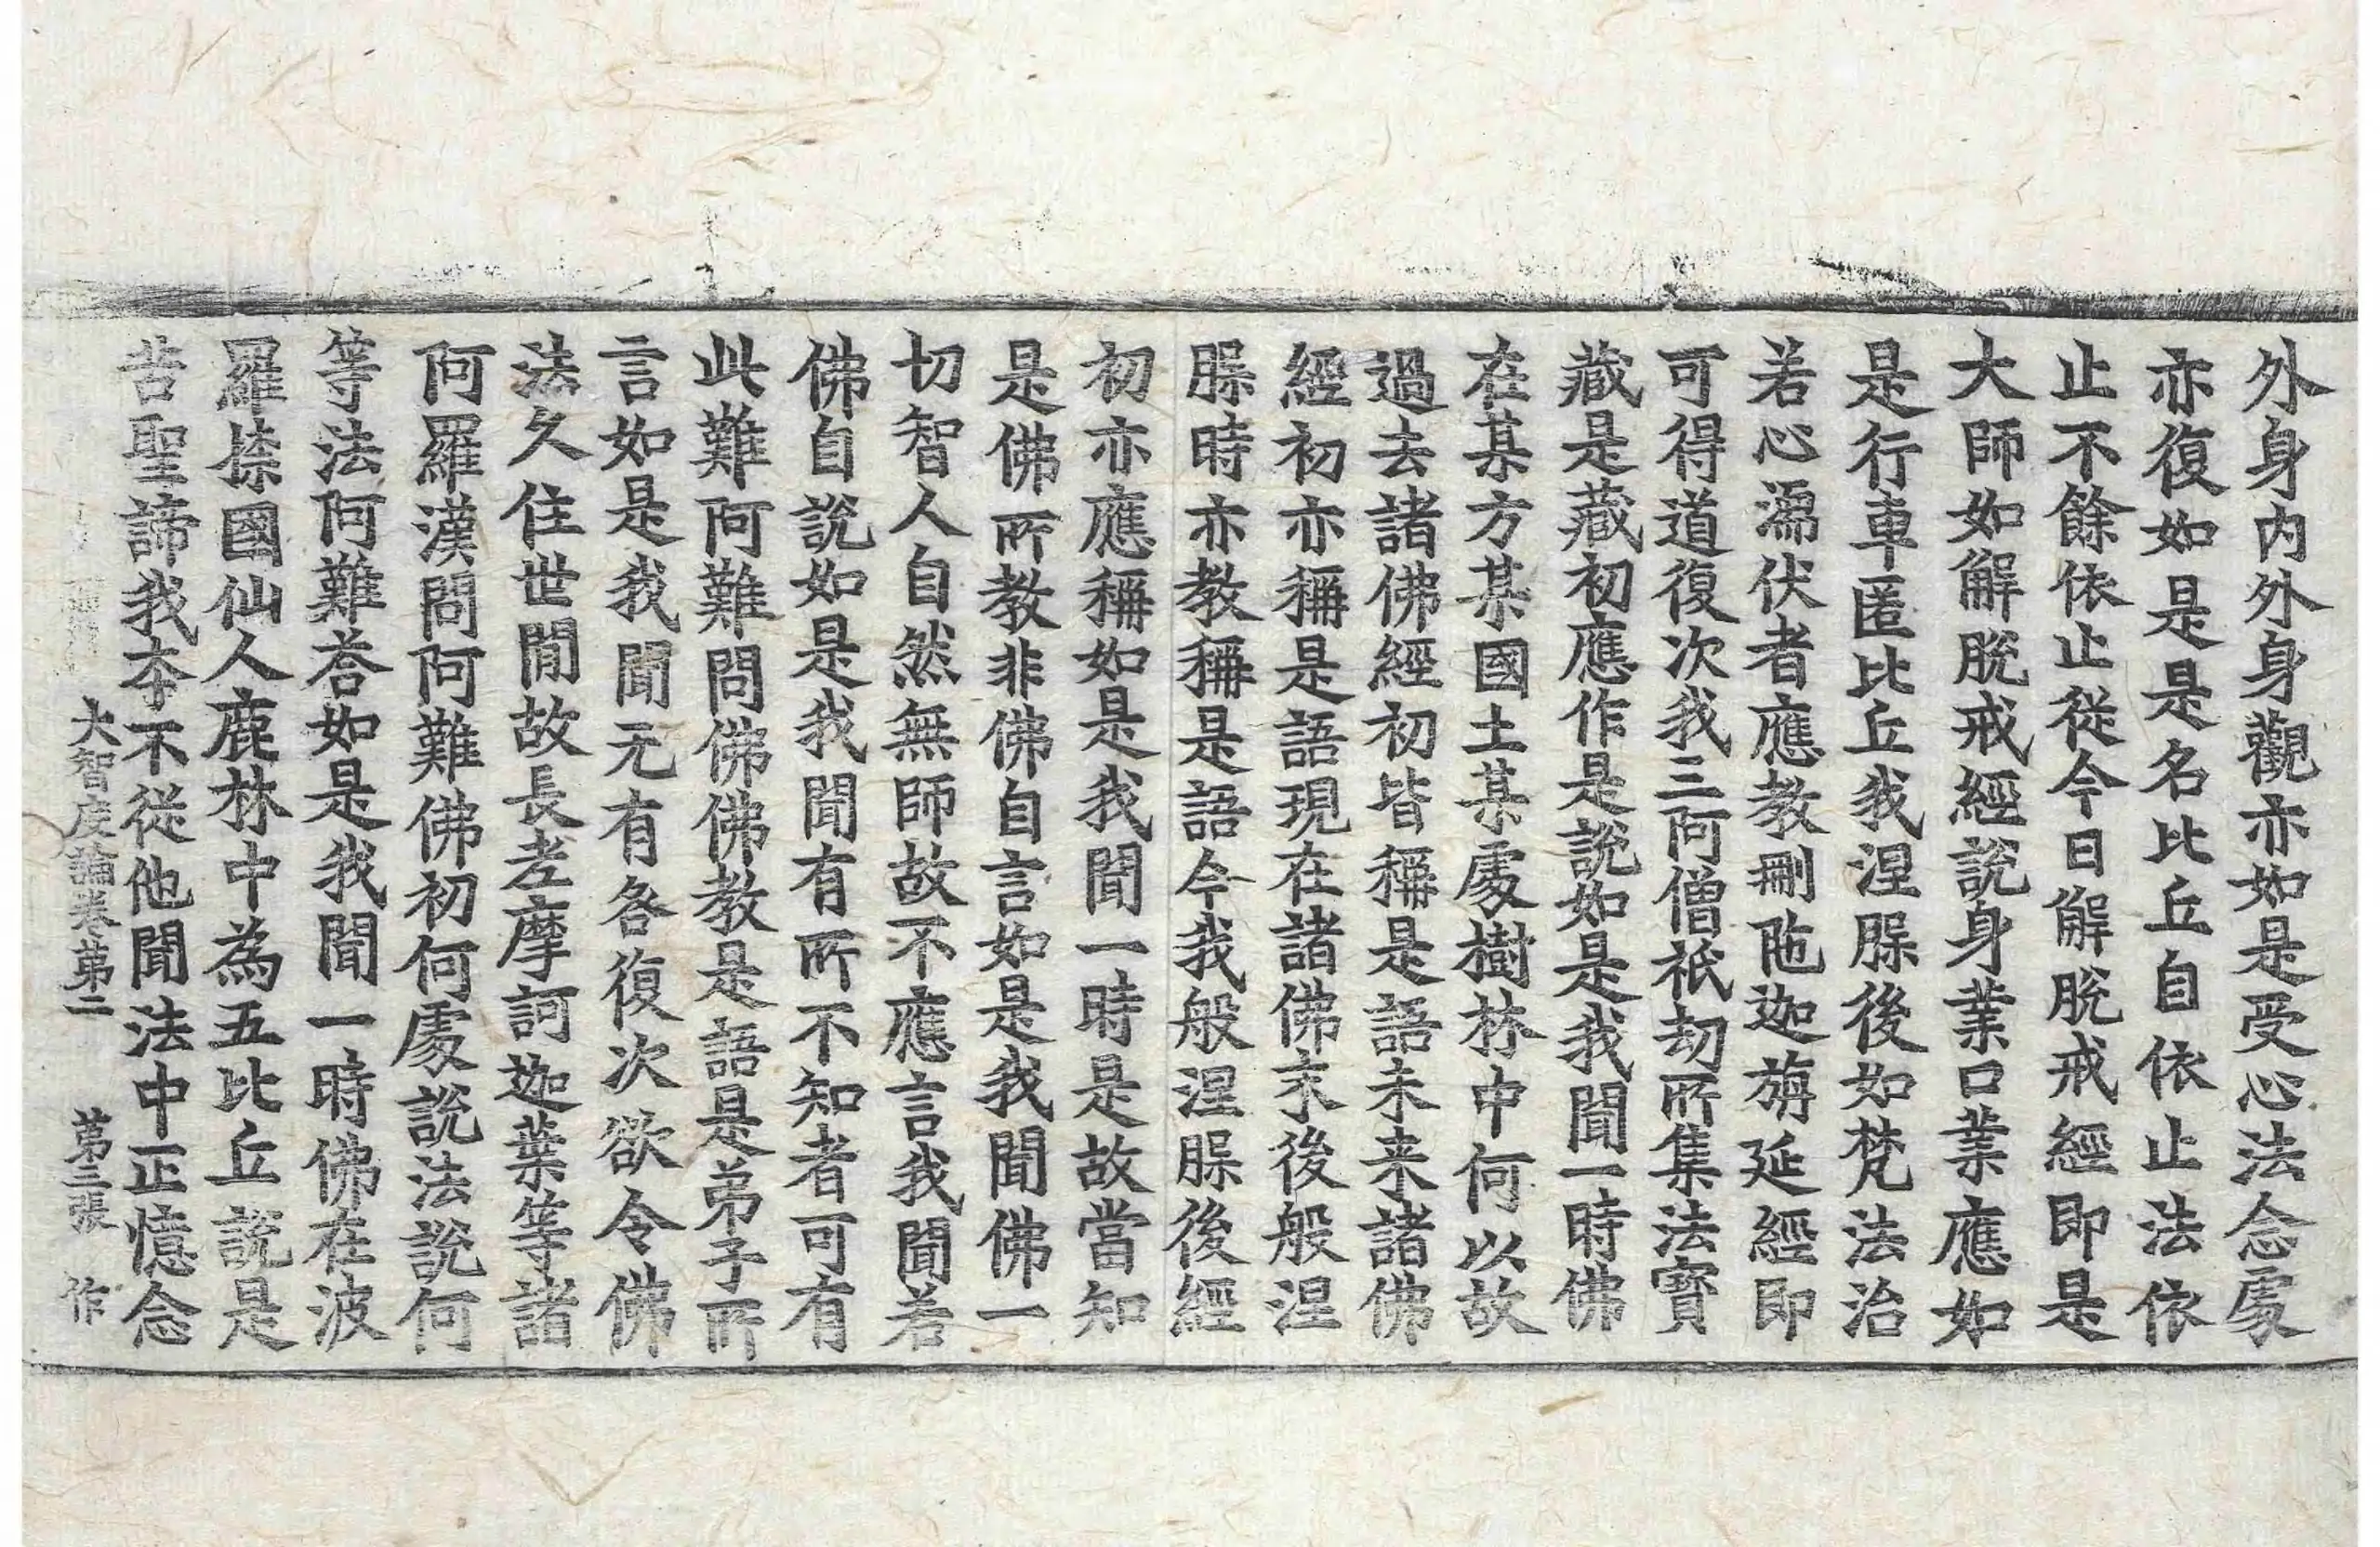 外身內外身觀亦如是受心法念處
亦復如是是名比丘自依止法依
止不餘依止從今日解脫戒經即是
大師如解脫戒經說身業口業應如
是行車匿比丘我涅槃後如梵法治
若心濡伏者應教刪陁迦旃延經即
可得道復次我三阿僧祇劫所集法寶
藏是藏初應作是說如是我聞一時佛
在某方某國土某處樹林中何以故
過去諸佛經初皆稱是語未来諸佛
經初亦稱是語現在諸佛末後般涅
槃時亦教稱是語今我般涅槃後經
初亦應稱如是我聞一時是故當知
是佛所教非佛自言如是我聞佛一
切智人自然無師故不應言我聞若
佛自說如是我聞有所不知者可有
此難阿難問佛佛教是語是弟子所
言如是我聞无有咎復次欲令佛
法久住世間故長老摩訶迦葉等諸
阿羅漢問阿難佛初何處說法說何
等法阿難荅如是我聞一時佛在波
羅捺國仙人鹿林中為五比丘說是
苦聖諦我夲不從他聞法中正憶念
大智度論卷第二 第三張 作